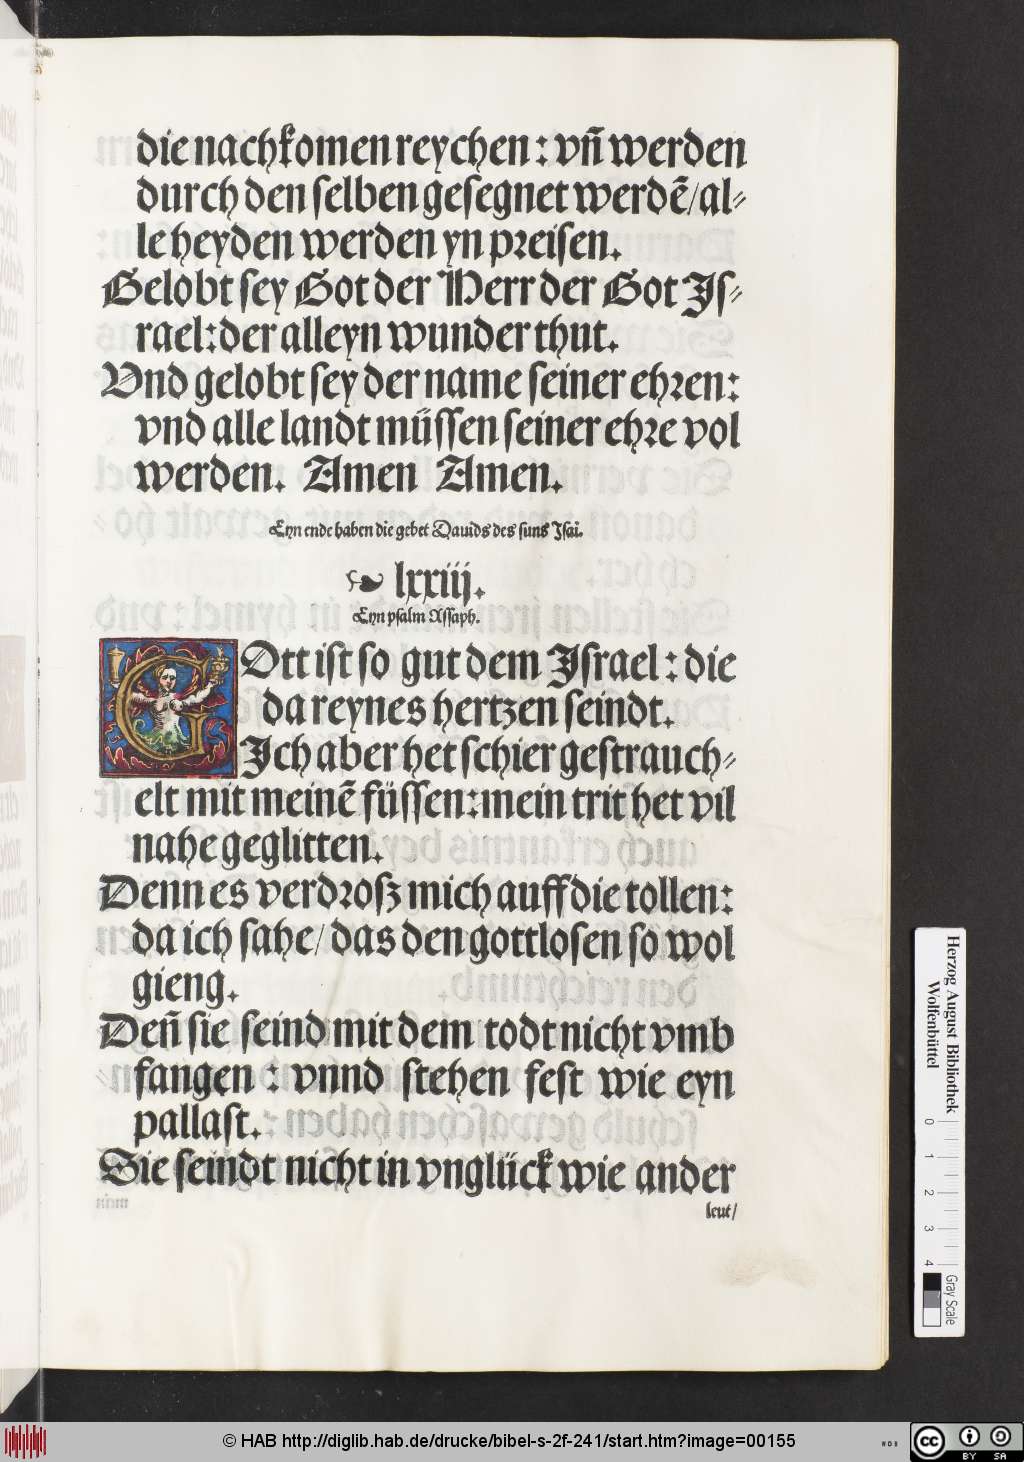 die nachkomen reychen : vn̄ werden
durch den selben gesegnet werdē/al⸗
le heyden werden yn preisen.
Gelobt sey Got der Herr der Got Js⸗
rael: der alleyn wunder thut.
Vnd gelobt sey der name seiner ehren:
vnd alle landt müssen seiner ehre vol
werden. Amen Amen.
Eyn ende haben die gebet Dauids des suns Jsai.
☙ lxxiij.
Eyn psalm Assaph.
GOtt ist so gut dem Jsrael : die
da reynes hertzen seindt.
Jch aber het schier gestrauch⸗
elt mit meinē füssen: mein trit het vil
nahe geglitten.
Denn es verdroß mich auff die tollen:
da ich sahe/ das den gottlosen so wol
gieng.
Den̄ sie seind mit dem todt nicht vmb
fangen : vnnd stehen fest wie eyn
pallast.
Sie seindt nicht in vnglück wie ander
leut/
Herzog August Bibliothek
Wolfenbüttel
0 1 2 3 4
Gray Scale
© HAB http://diglib.hab.de/drucke/bibel-s-2f-241/start.htm?image=00155
cc BY SA